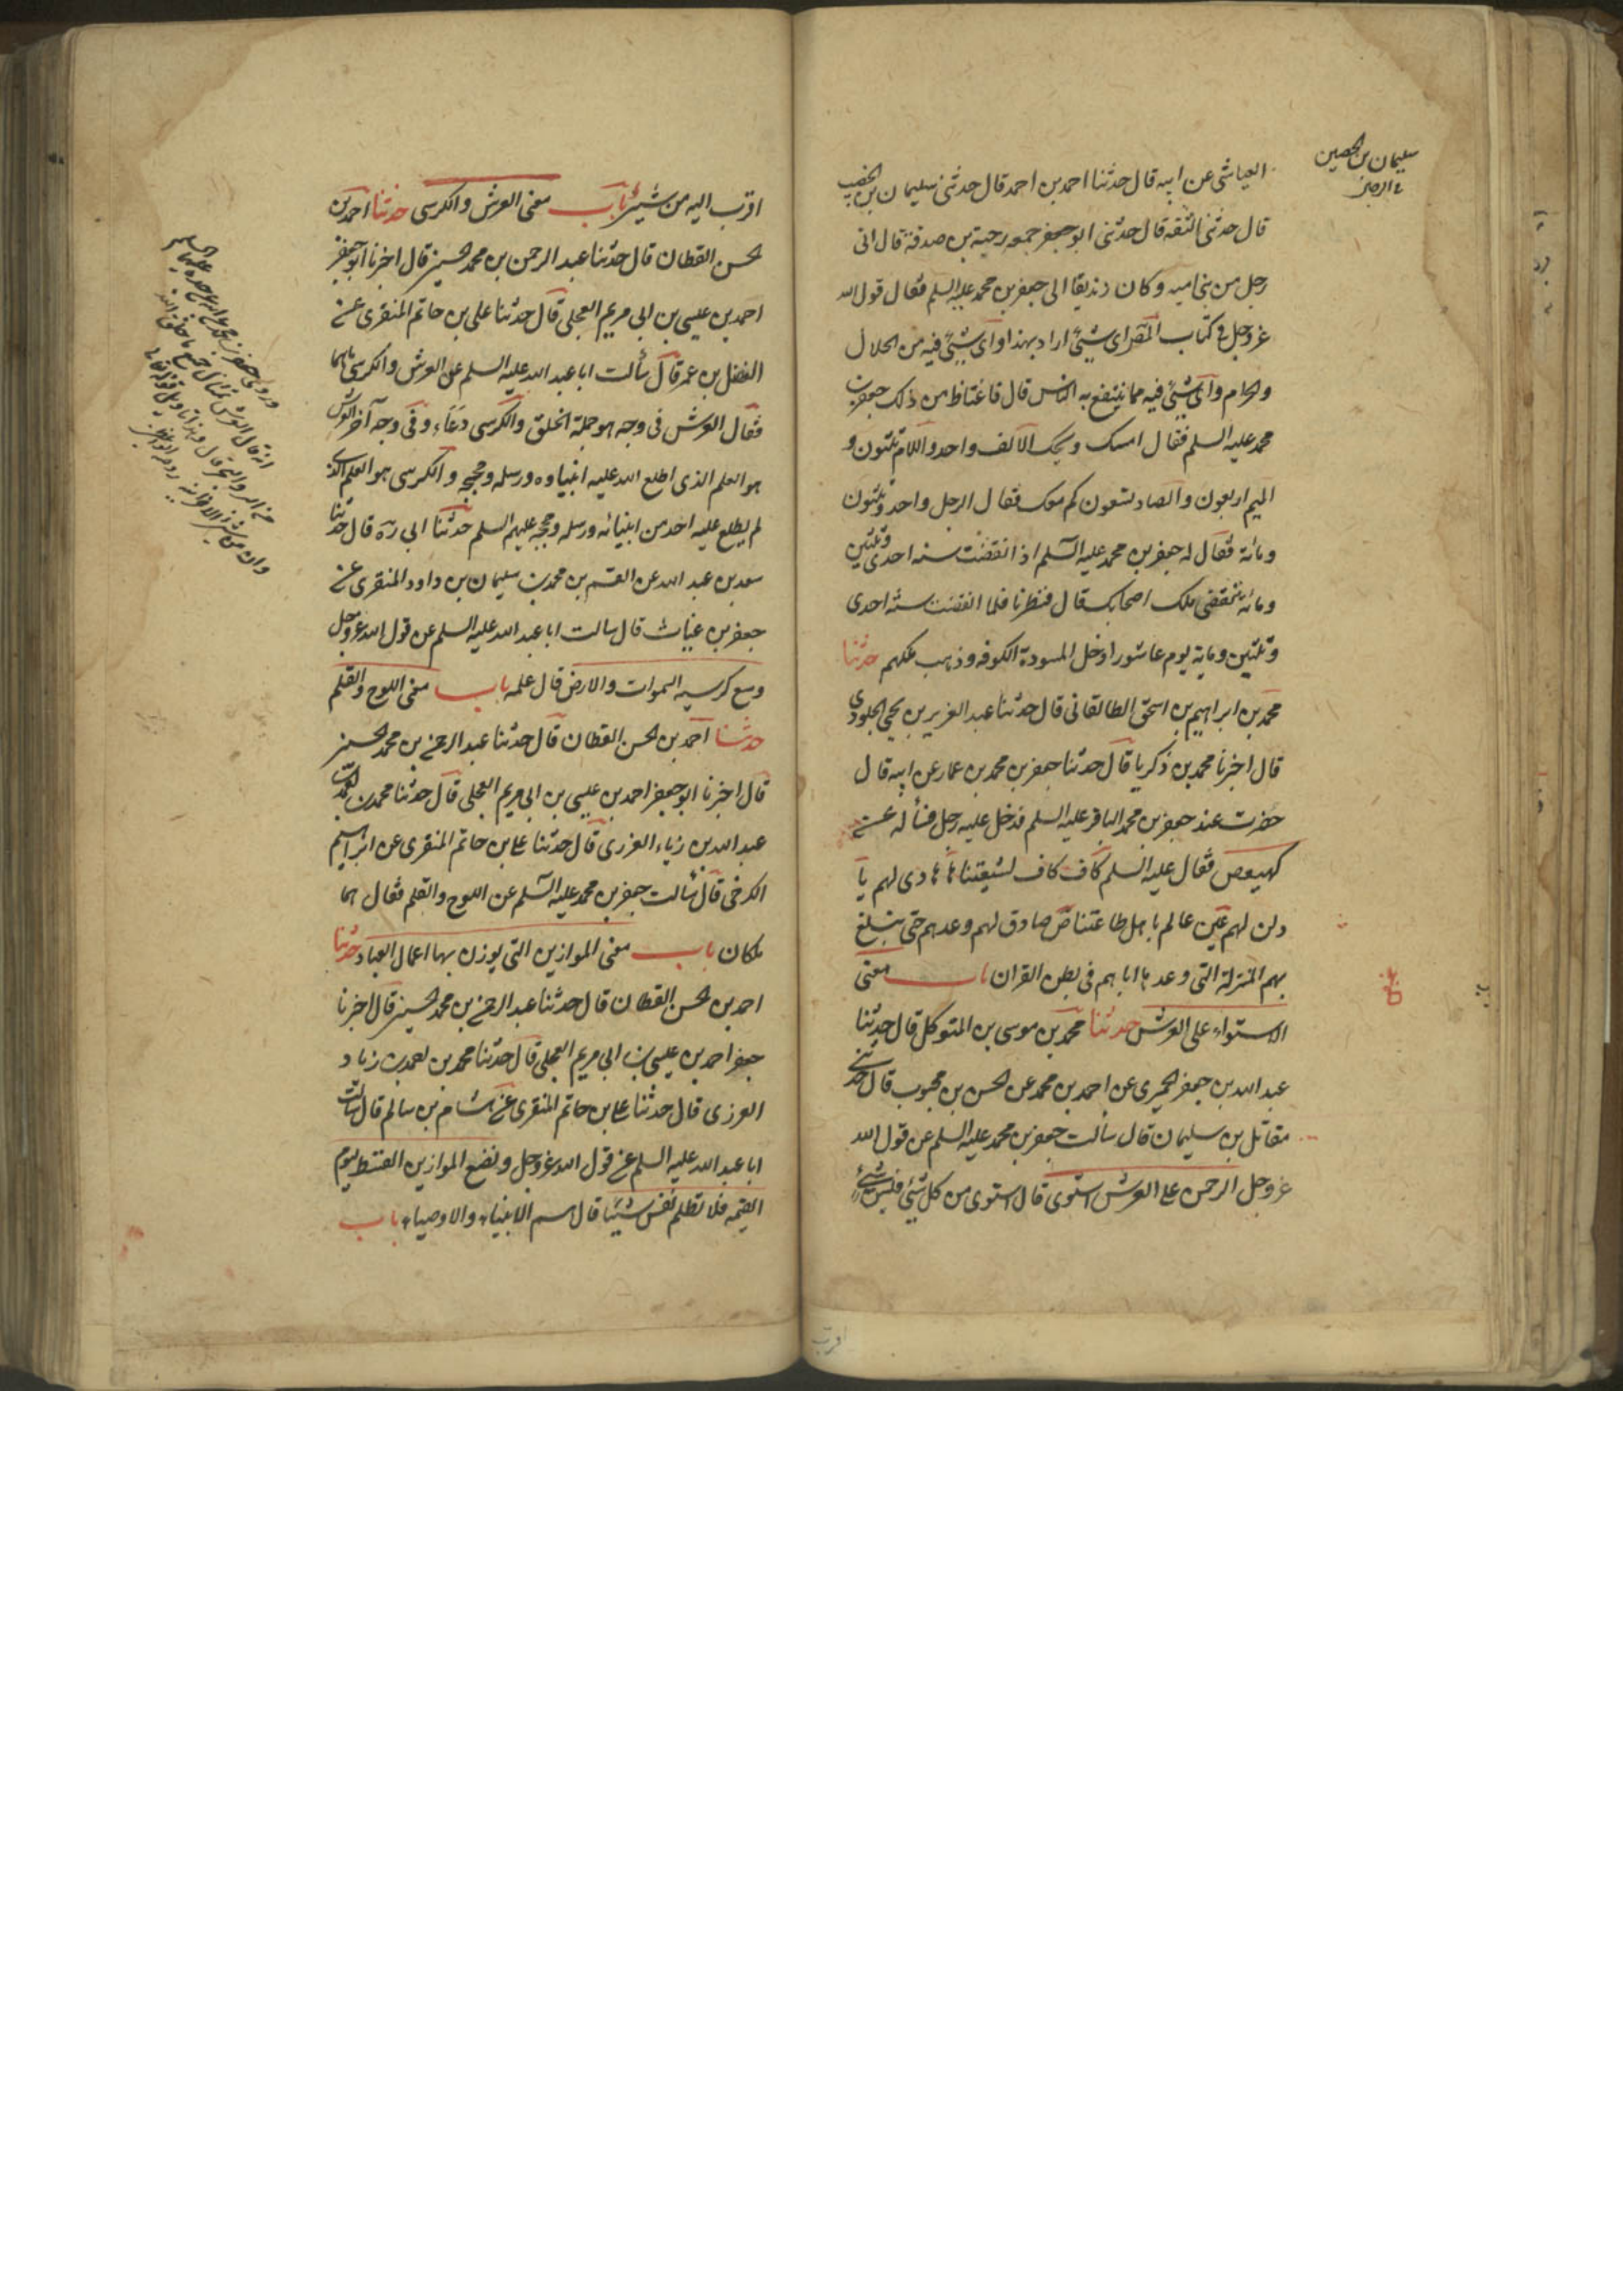 سلیمان بن الخصیب
العیاشی عن ابیه قال حدثنا احمد بن احمد قال حدثنی سلیمان بن الخصیب
قال حدثنی الثقه قال حدثنی ابو جعفر جمعه رحبة بن صدقة قال اتی
رجل من بنی امیه و کان زندیقا الی جعفر بن محمد علیه السلم فقال قول الله
عز وجل فی کتاب المص ای شیئ اراد بهذا و ای شیئ فیه من الحلال
والحرام و ای شیئ فیه مما ینتفع به الناس قال فاغتاظ من ذلک جعفر بن
محمد علیه السلم فقال امسک ویحک الالف واحد واللام ثلثون و
المیم اربعون والصاد تسعون کم معک فقال الرجل واحد وثلثون
ومائة فقال له جعفر بن محمد علیه السلم اذا انقضت سنه احدی وثلثین
ومائه ینقضی ملک اصحابک قال فنظرنا فلما انقضت سنة احدی
وثلثین ومایة یوم عاشورا دخل المسودة الکوفه وذهب ملکهم حدثنا
محمد بن ابراهیم بن اسحق الطالقانی قال حدثنا عبد العزیز بن یحیی الجلودی
قال اخبرنا محمد بن زکریا قال حدثنا جعفر بن محمد بن عمار عن ابیه قال
حضرت عند جعفر بن محمد الباقر علیه السلم فدخل علیه رجل فسأله عن
کهیعص فقال علیه السلم کاف کاف لشیعتنا ها هادی لهم یا
ولی لهم عین عالم باهل طاعتنا ص صادق لهم وعدهم حتی یبلغ
بهم المنزلة التی وعدها اباهم فی بطن القران باب معنی
الاستواء علی العرش حدثنا محمد بن موسی بن المتوکل قال حدثنا
عبد الله بن جعفر الحمیری عن احمد بن محمد عن الحسن بن محبوب قال حدثنی
مقاتل بن سلیمان قال سالت جعفر بن محمد علیه السلم عن قول الله
عز وجل الرحمن علی العرش استوی قال استوی من کل شیئ فلیس شیئ
اقرب
اقرب الیه من شیئ باب معنی العرش والکرسی حدثنا احمد بن
الحسن القطان قال حدثنا عبد الرحمن بن محمد الحسینی قال اخبرنا ابو جعفر
احمد بن عیسی بن ابی مریم العجلی قال حدثنا علی بن حاتم المنقری عن
المفضل بن عمر قال سألت ابا عبد الله علیه السلم عن العرش والکرسی ما هما
فقال العرش فی وجه هو جملة الخلق والکرسی وعاء و فی وجه آخر العرش
هو العلم الذی اطلع الله علیه انبیاوه ورسله وحججه والکرسی هو العلم الذی
لم یطلع علیه احد من انبیائه ورسله وحججه علیهم السلم حدثنا ابی ره قال حدثنا
سعد بن عبد الله عن القسم بن محمد بن سلیمان بن داود المنقری عن
جعفر بن غیاث قال سالت ابا عبد الله علیه السلم عن قول الله عز وجل
وسع کرسیه السموات والارض قال علمه باب معنی اللوح والقلم
حدثنا احمد بن الحسن القطان قال حدثنا عبد الرحمن بن محمد الحسینی
قال اخبرنا ابو جعفر احمد بن عیسی بن ابی مریم العجلی قال حدثنا محمد بن احمد بن
عبد الله بن زیاد العرزمی قال حدثنا علی بن حاتم المنقری عن ابراهیم
الکرخی قال سألت جعفر بن محمد علیه السلم عن اللوح والقلم فقال هما
ملکان باب معنی الموازین التی یوزن بها اعمال العباد حدثنا
احمد بن الحسن القطان قال حدثنا عبد الرحمن بن محمد الحسینی قال اخبرنا
جعفر احمد بن عیسی بن ابی مریم العجلی قال حدثنا محمد بن احمد بن زیاد
العرزمی قال حدثنا علی بن حاتم المنقری عن هشام بن سالم قال سالت
ابا عبد الله علیه السلم عن قول الله عز وجل ونضع الموازین القسط لیوم
القیمه فلا تظلم نفس شیئا قال هم الانبیاء والاوصیاء باب